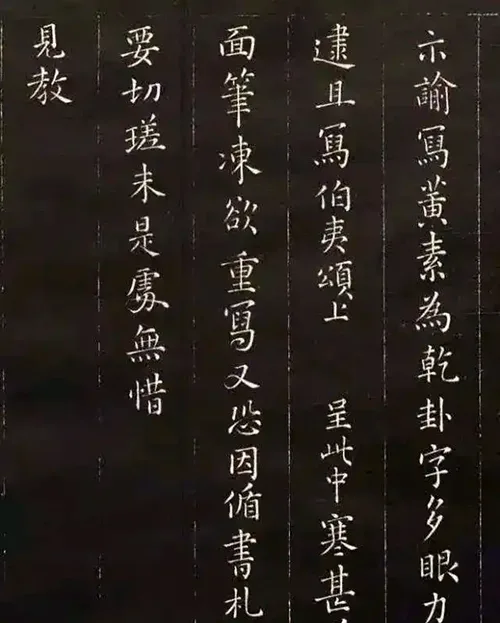 示諭冩黃素為乾卦字多眼力
逮且冩伯夷頌上 呈此中寒甚
面筆凍欲重冩又恐因偱書札
要切瑳未是處無惜
見教